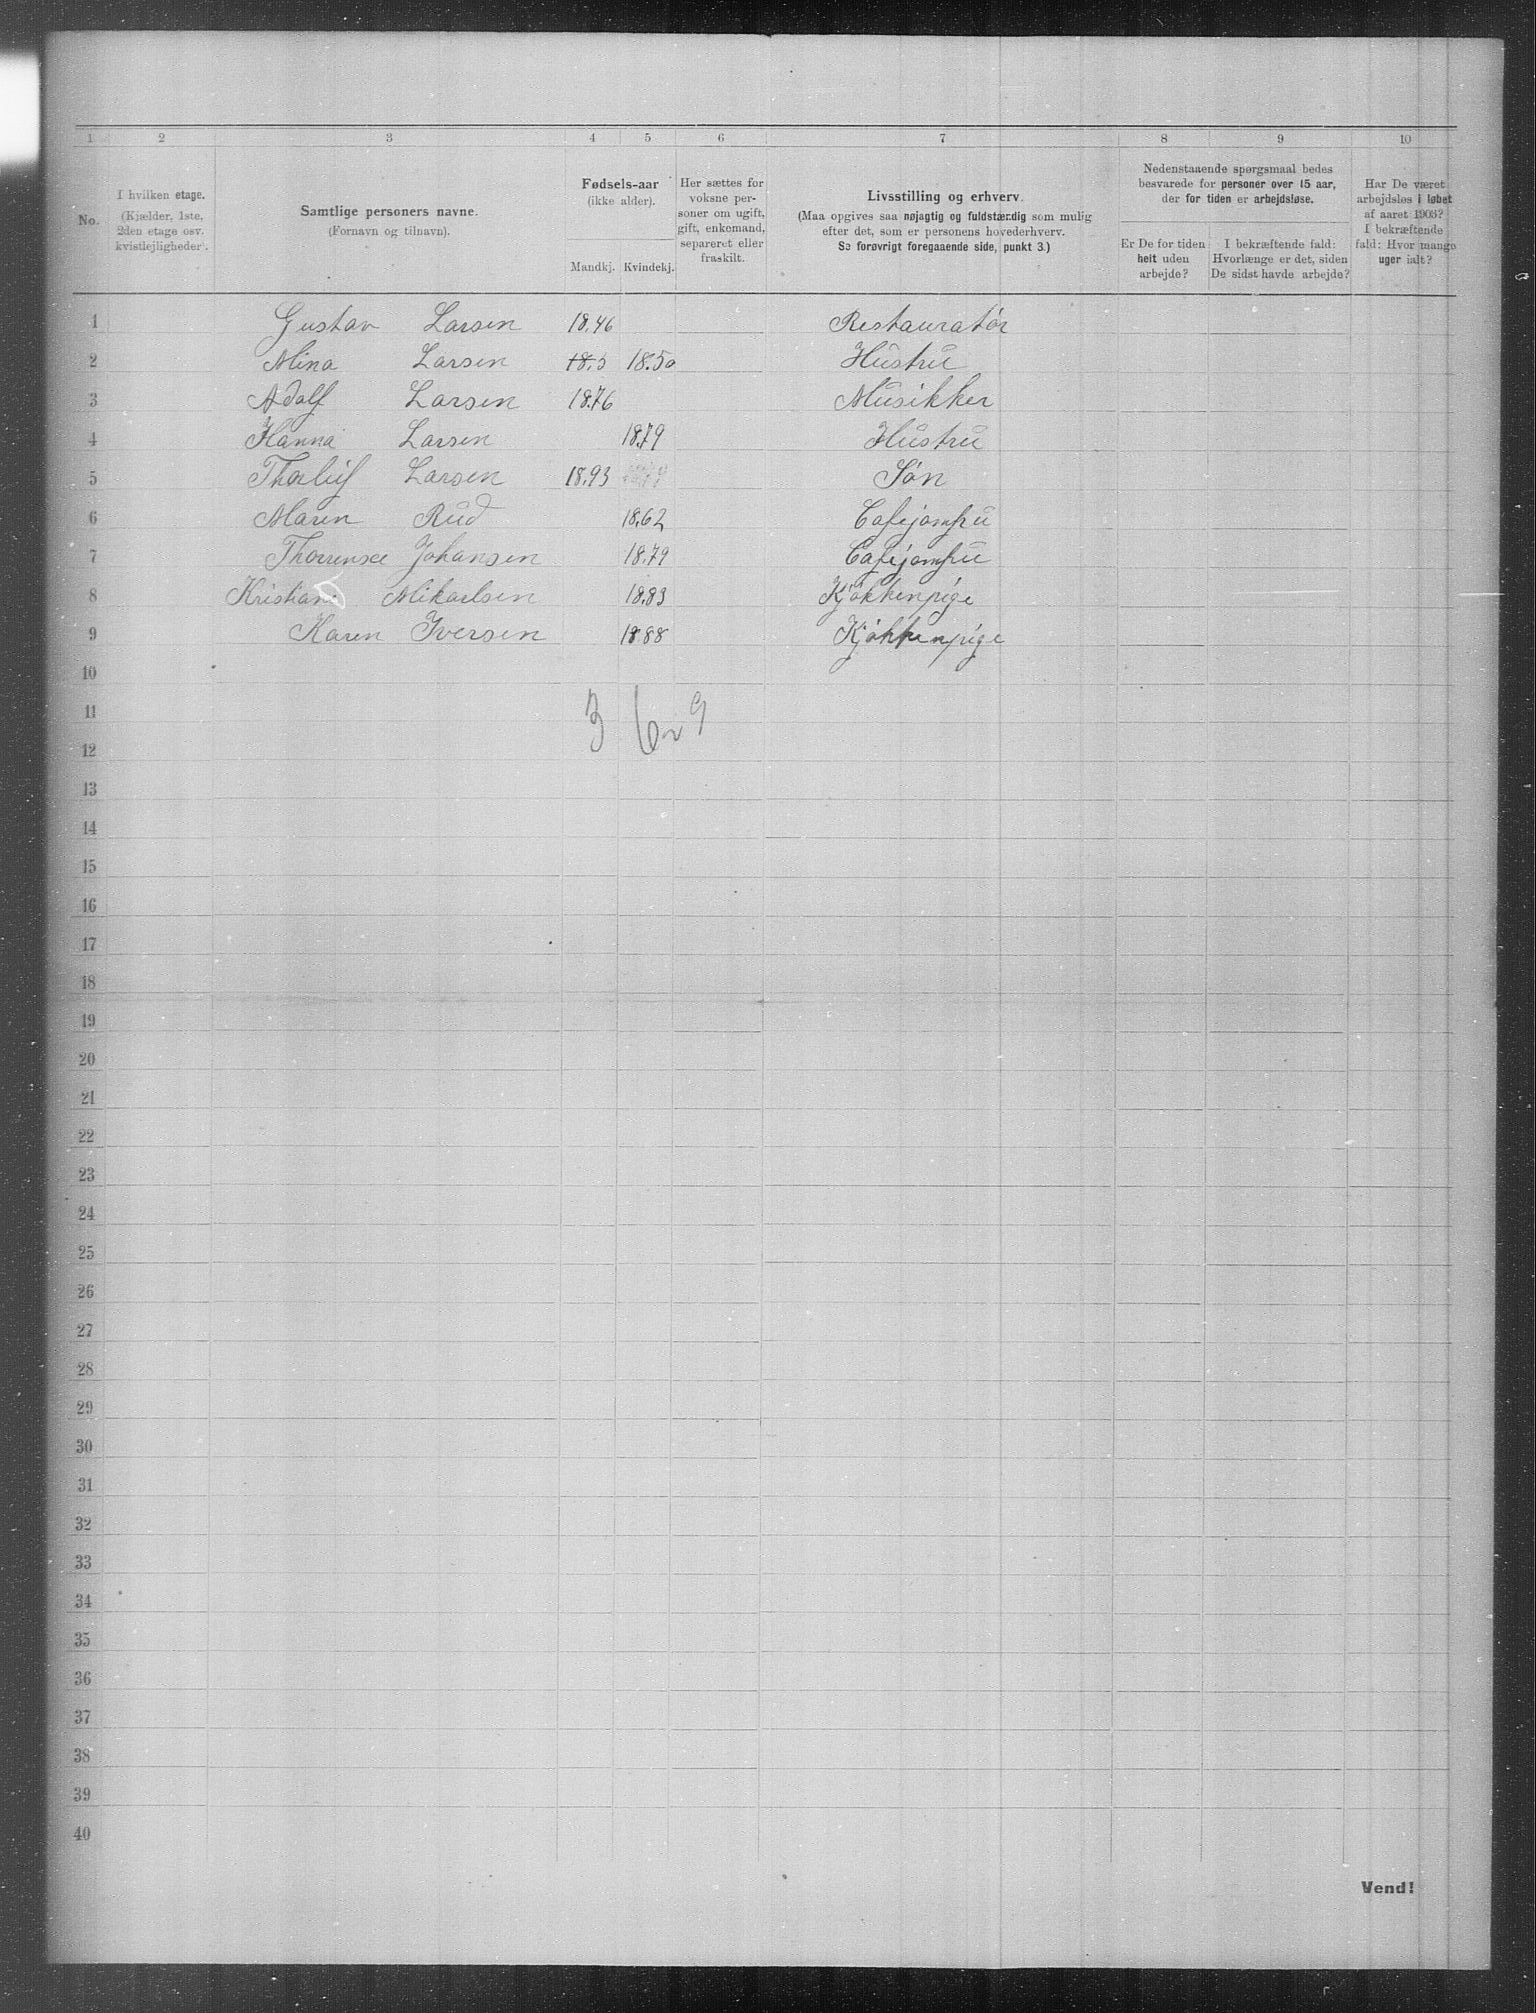 1 2 3 4 5 6 7 8 9 10
No.
I hvilken etage.
(Kjælder, 1ste,
2den etage osv.
kvistlejligheder).
Samtlige personers navne.
(Fornavn og tilnavn).
Fødsels-aar
(ikke alder).
Mandkj. Kvindekj.
Her sættes for
voksne per-
soner om ugift,
gift, enkemand,
separeret eller
fraskilt.
Livsstilling og erhverv.
(Maa opgives saa nøjagtig og fuldstændig som mulig
efter det, som er personens hovederhverv.
Se forøvrigt foregaaende side, punkt 3.)
Nedenstaaende spørgsmaal bedes
besvarede for personer over 15 aar,
der for tiden er arbejdsløse.
Er De for tiden
helt uden
arbejde?
I bekræftende fald:
Hvorlænge er det, siden
De sidst havde arbejde?
Har De været
arbejdsløs i løbet
af aaret 1903?
I bekræftende
fald: Hvor mange
uger ialt?
1 Gustav Larsen 18.46 Restauratør
2 Mina Larsen 18.5 18.50 Hustru
3 Adolf Larsen 18.76 Musikker
4 Hanna Larsen 18.79 Hustru
5 Thorleif Larsen 18.93 Søn
6 Maren Rud 18.62 Cafejomfru
7 Johansen 18.79 Cafejomfru
8 Kristiane Mikaelsen 18.83 Kjøkkenpige
9 Karen Iversen 1888 Kjøkkenpige
10
11
3 6 9
12
13
14
15
16
17
18
19
20
21
22
23
24
25
26
27
28
29
30
31
32
33
34
35
36
37
38
39
40
Vend!